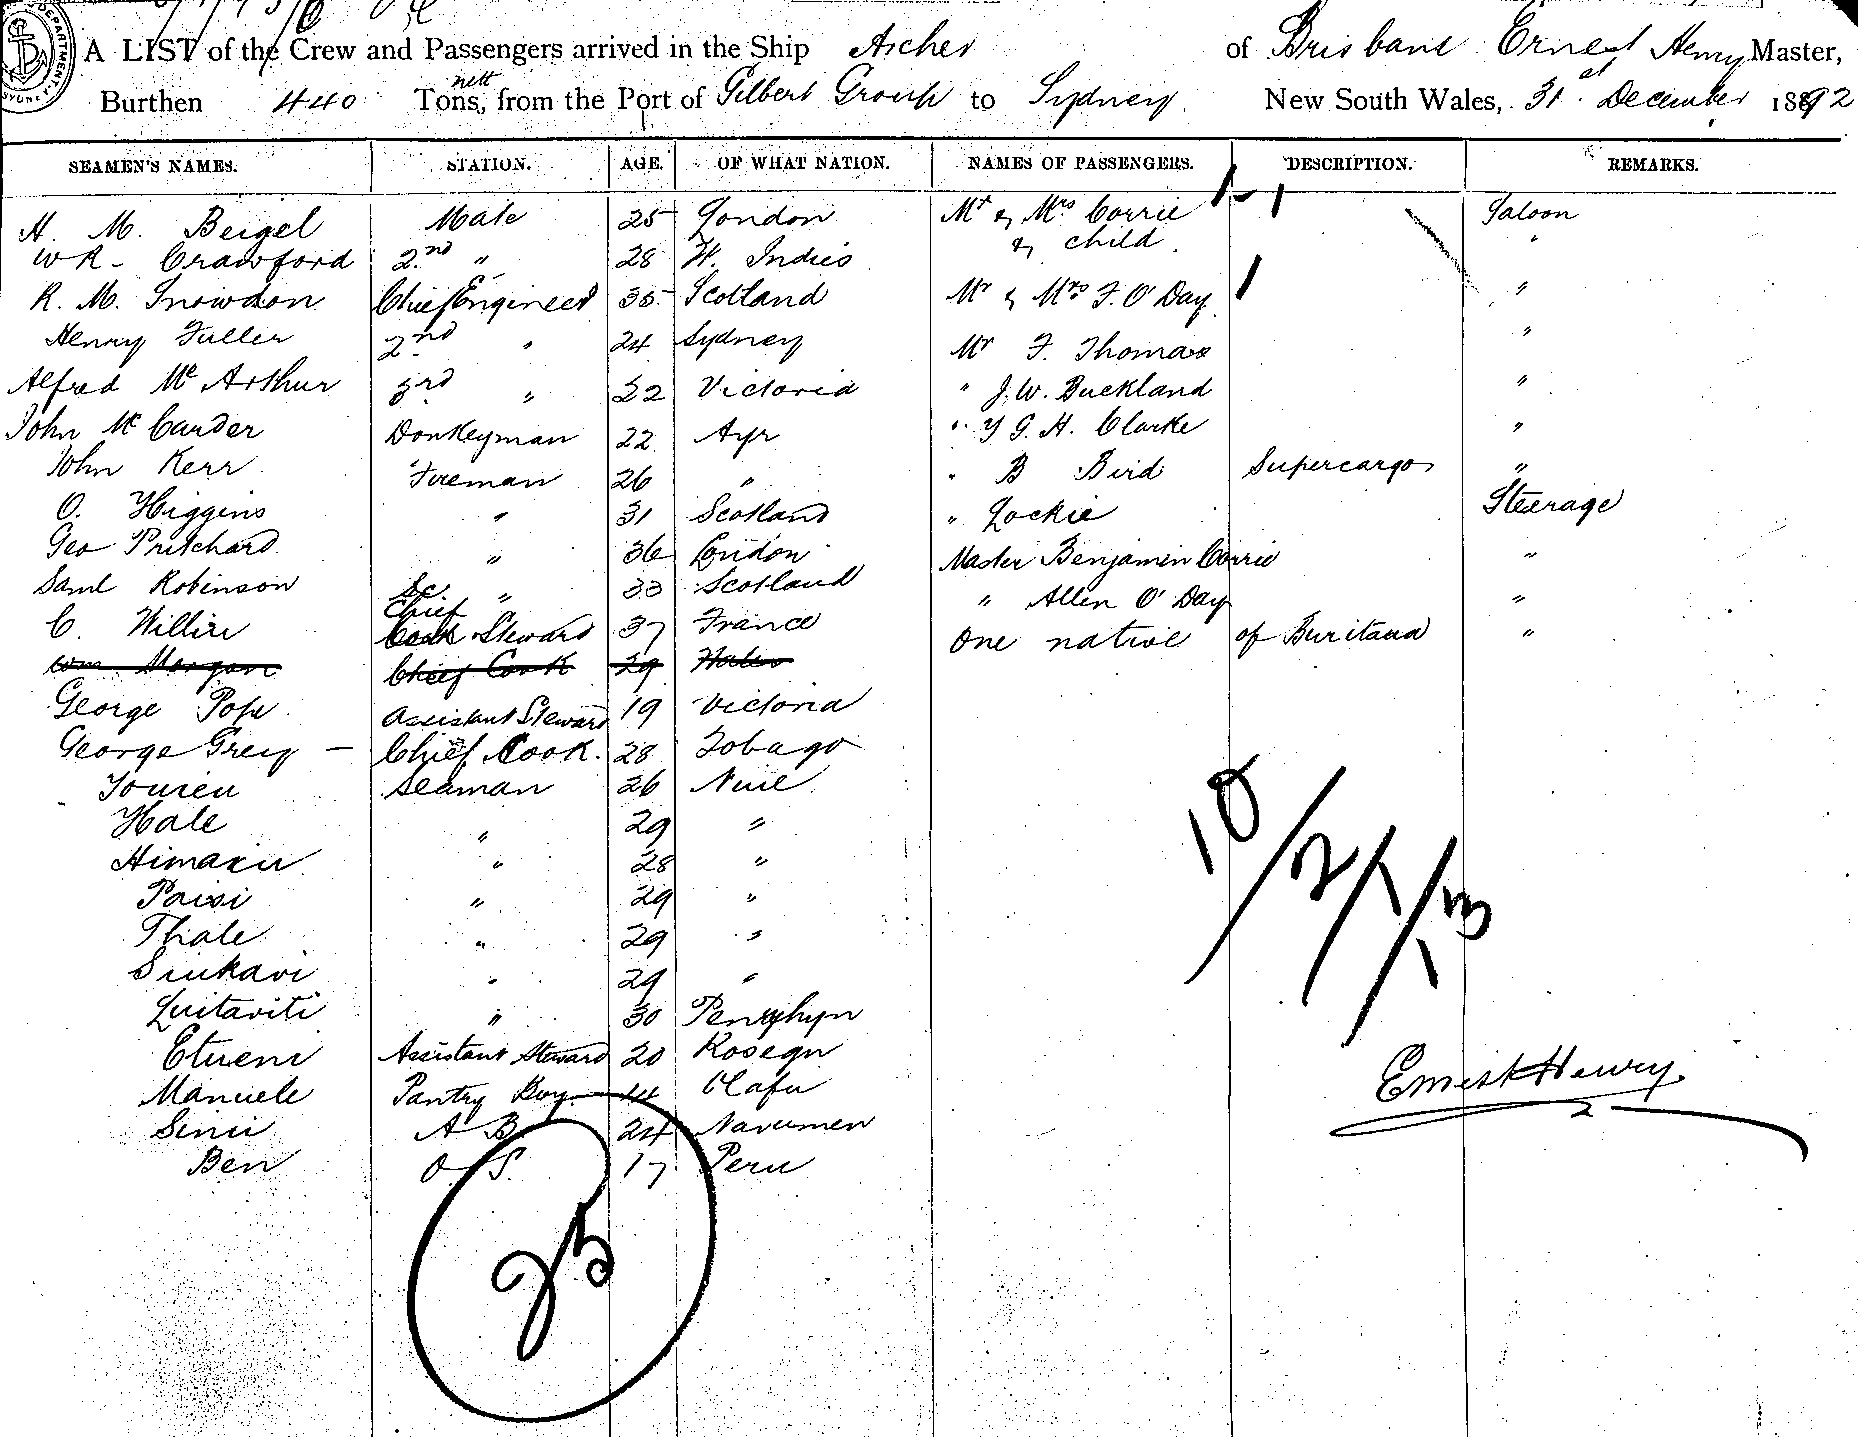 A LIST of the Crew and Passengers arrived in the Ship Archer of Brisbane Ernest Henry Master,
Burthen 440 nett Tons, from the Port of Gilbert Group to Sydney New South Wales, 31st December 1892
SEAMEN'S NAMES. STATION. AGE. OF WHAT NATION. NAMES OF PASSENGERS. DESCRIPTION. REMARKS.
H. M. Beigel Mate 25 London Mr & Mrs Corrie Saloon
& child "
W R Crawford 2nd " 28 W. Indies
R. M. Snowdon Chief Engineer 35 Scotland Mr & Mrs F. O'Day "
Henry Fuller 2nd " 24 Sydney Mr F. Thomas "
Alfred McArthur 3rd " 22 Victoria " J. W. Buckland "
John McCarder Donkeyman 22 Ayr " G. H. Clarke "
John Kerr Fireman 26 " " B Bird Supercargo "
O. Higgins " 31 Scotland " Lockie Steerage
Geo Pritchard " 36 London Master Benjamin Corrie "
Saml Robinson " 33 Scotland " Allen O'Day "
C. Chief Steward 37 France One native of Buritana "
Wm Morgan Chief Cook 29 Wales
George Pope Assistant Steward 19 Victoria
George Grey – Chief Cook. 28 Tobago
Seaman 26 Niue
Hale " 29 "
" 28 "
Paisi " 29 "
Thale " 29 "
" 29 "
" 30 Penrhyn
Etueni Assistant Steward 20
Manuele Pantry Boy 14 Olafu
A B 24
Ben O S. 17 Peru
Ernest Henry